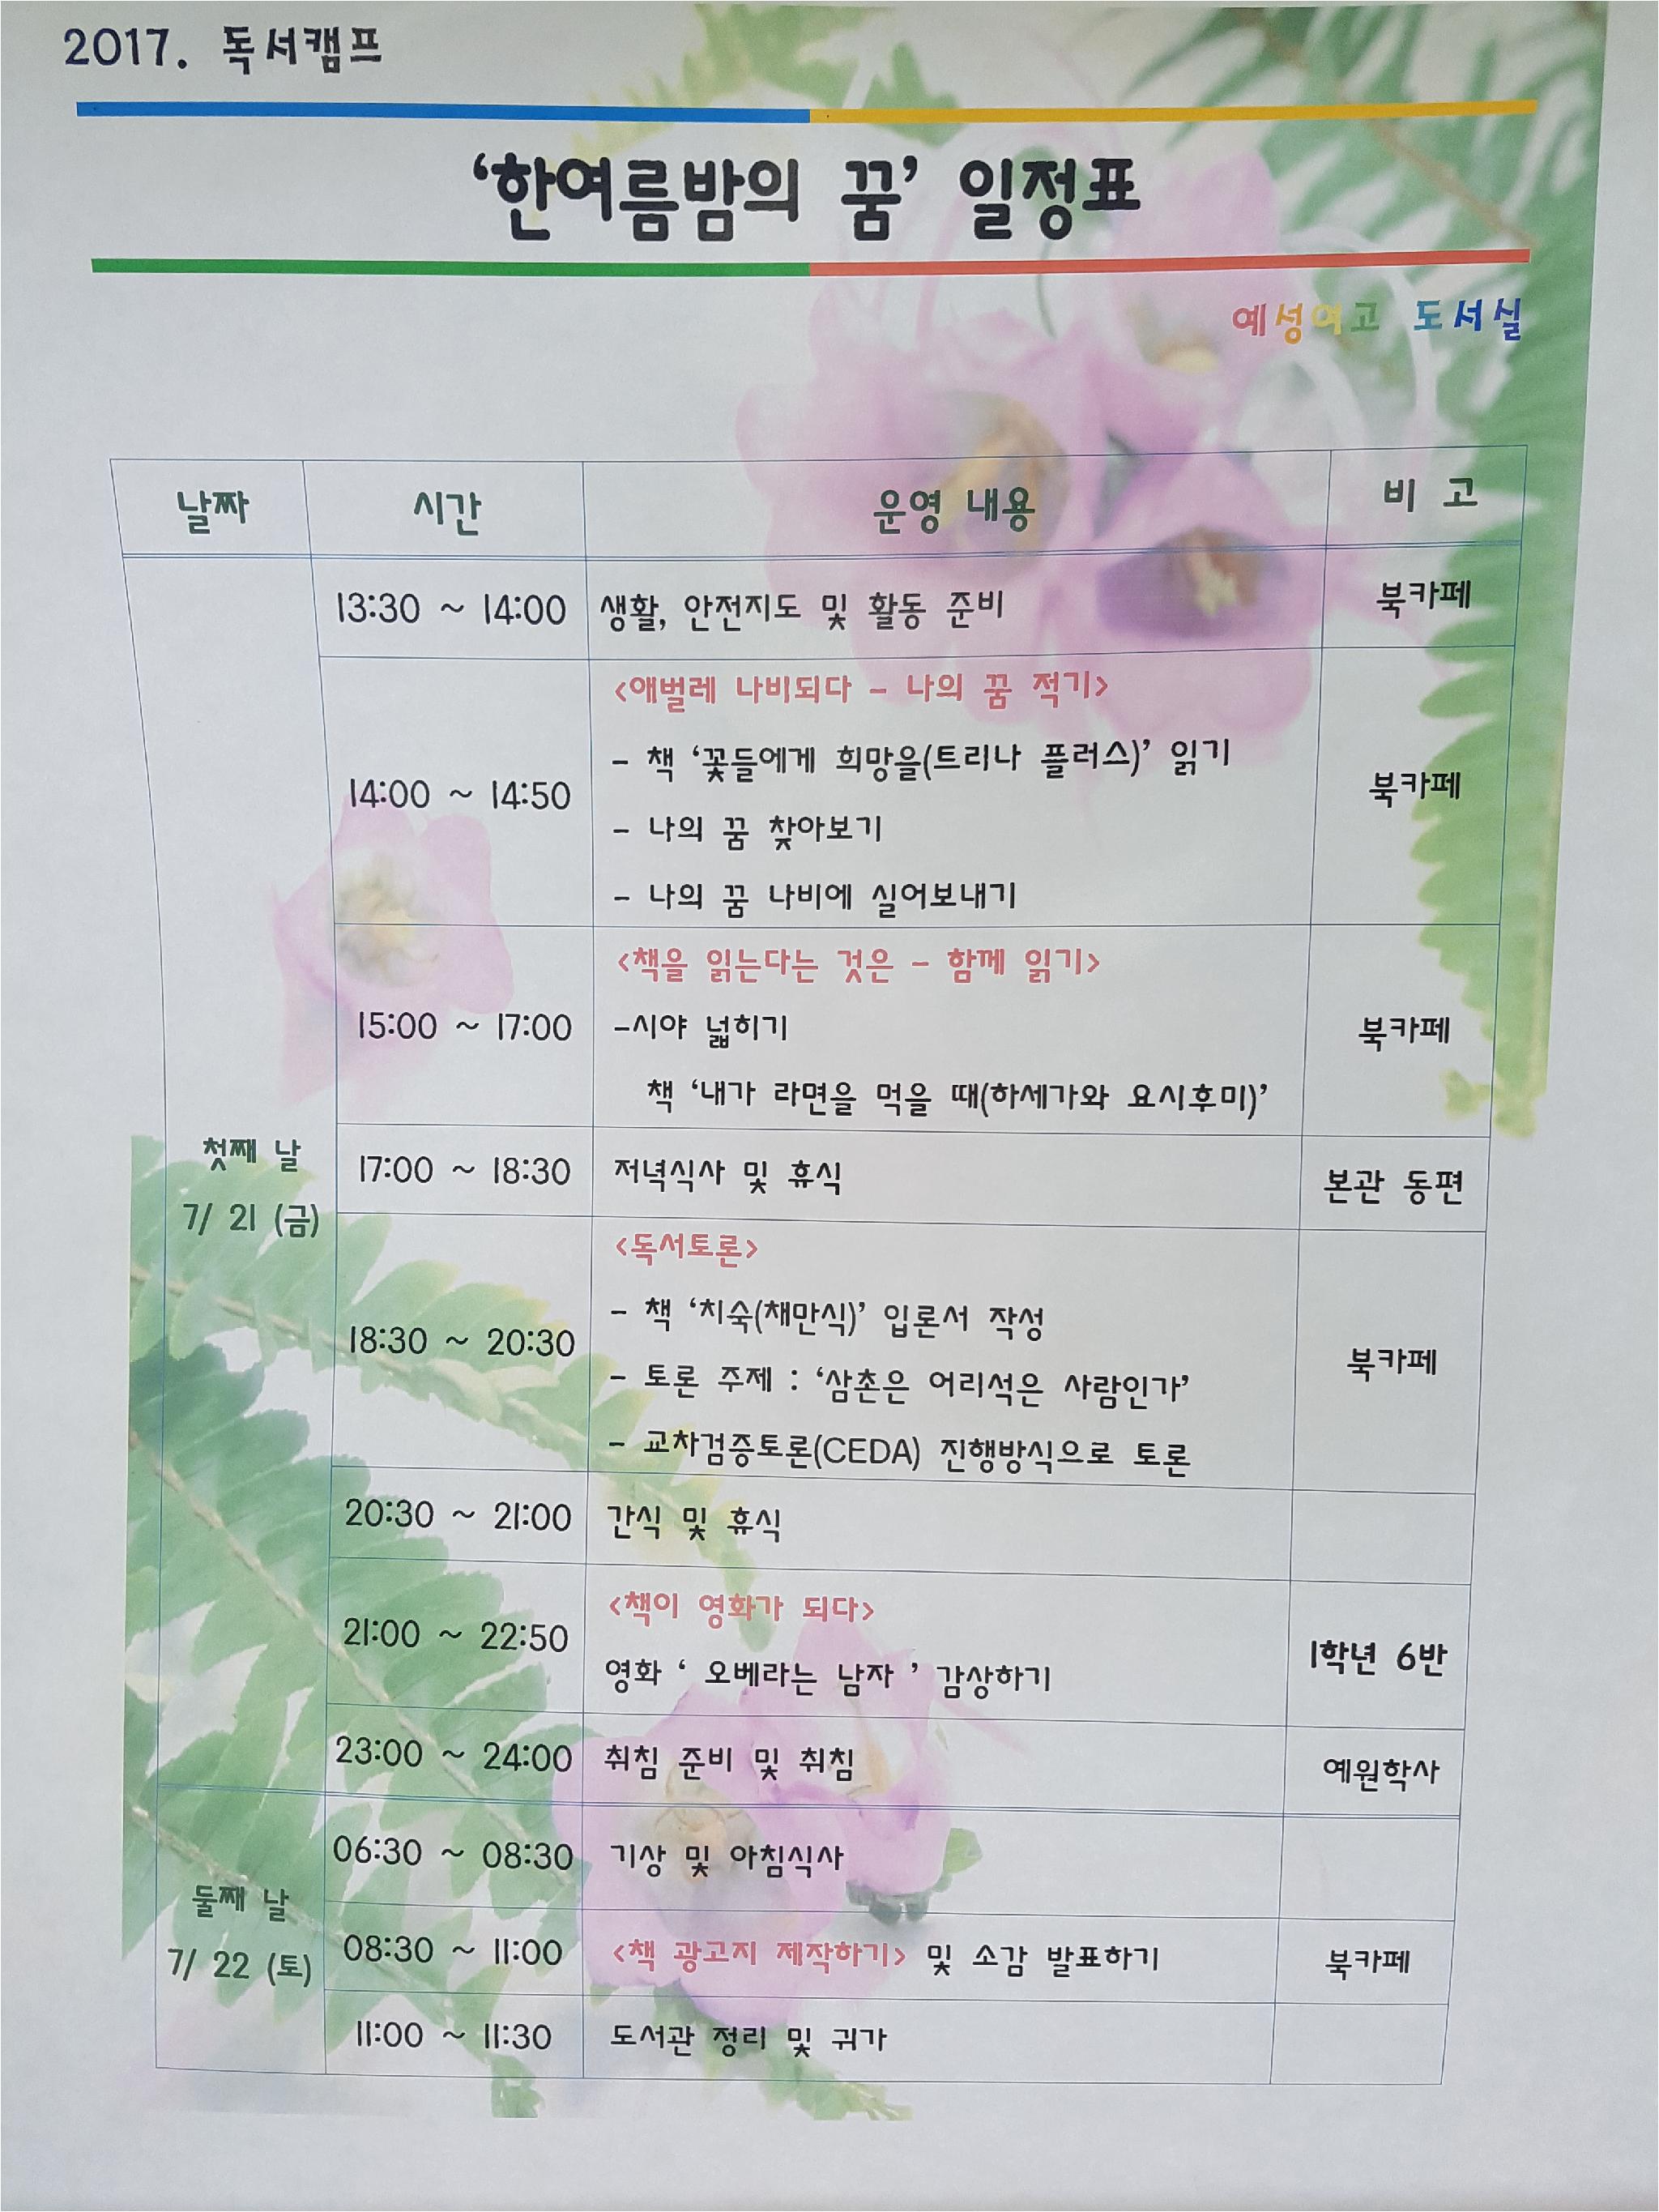 2017. 독서캠프
‘한여름밤의 꿈’ 일정표
예성여고 도서실
날짜 시간 운영 내용 비 고
첫째 날
7/ 21 (금)
13:30 ~ 14:00 생활, 안전지도 및 활동 준비 북카페
<애벌레 나비되다 - 나의 꿈 적기>
- 책 ‘꽃들에게 희망을(트리나 플러스)’ 읽기
14:00 ~ 14:50 북카페
- 나의 꿈 찾아보기
- 나의 꿈 나비에 실어보내기
<책을 읽는다는 것은 - 함께 읽기>
15:00 ~ 17:00 -시야 넓히기 북카페
책 ‘내가 라면을 먹을 때(하세가와 요시후미)’
17:00 ~ 18:30 저녁식사 및 휴식 본관 동편
<독서토론>
- 책 ‘치숙(채만식)’ 입론서 작성
18:30 ~ 20:30 북카페
- 토론 주제 : ‘삼촌은 어리석은 사람인가’
- 교차검증토론(CEDA) 진행방식으로 토론
20:30 ~ 21:00 간식 및 휴식
<책이 영화가 되다>
21:00 ~ 22:50 1학년 6반
영화 ‘ 오베라는 남자 ’ 감상하기
23:00 ~ 24:00 취침 준비 및 취침 예원학사
둘째 날
7/ 22 (토)
06:30 ~ 08:30 기상 및 아침식사
08:30 ~ 11:00 <책 광고지 제작하기> 및 소감 발표하기 북카페
11:00 ~ 11:30 도서관 정리 및 귀가